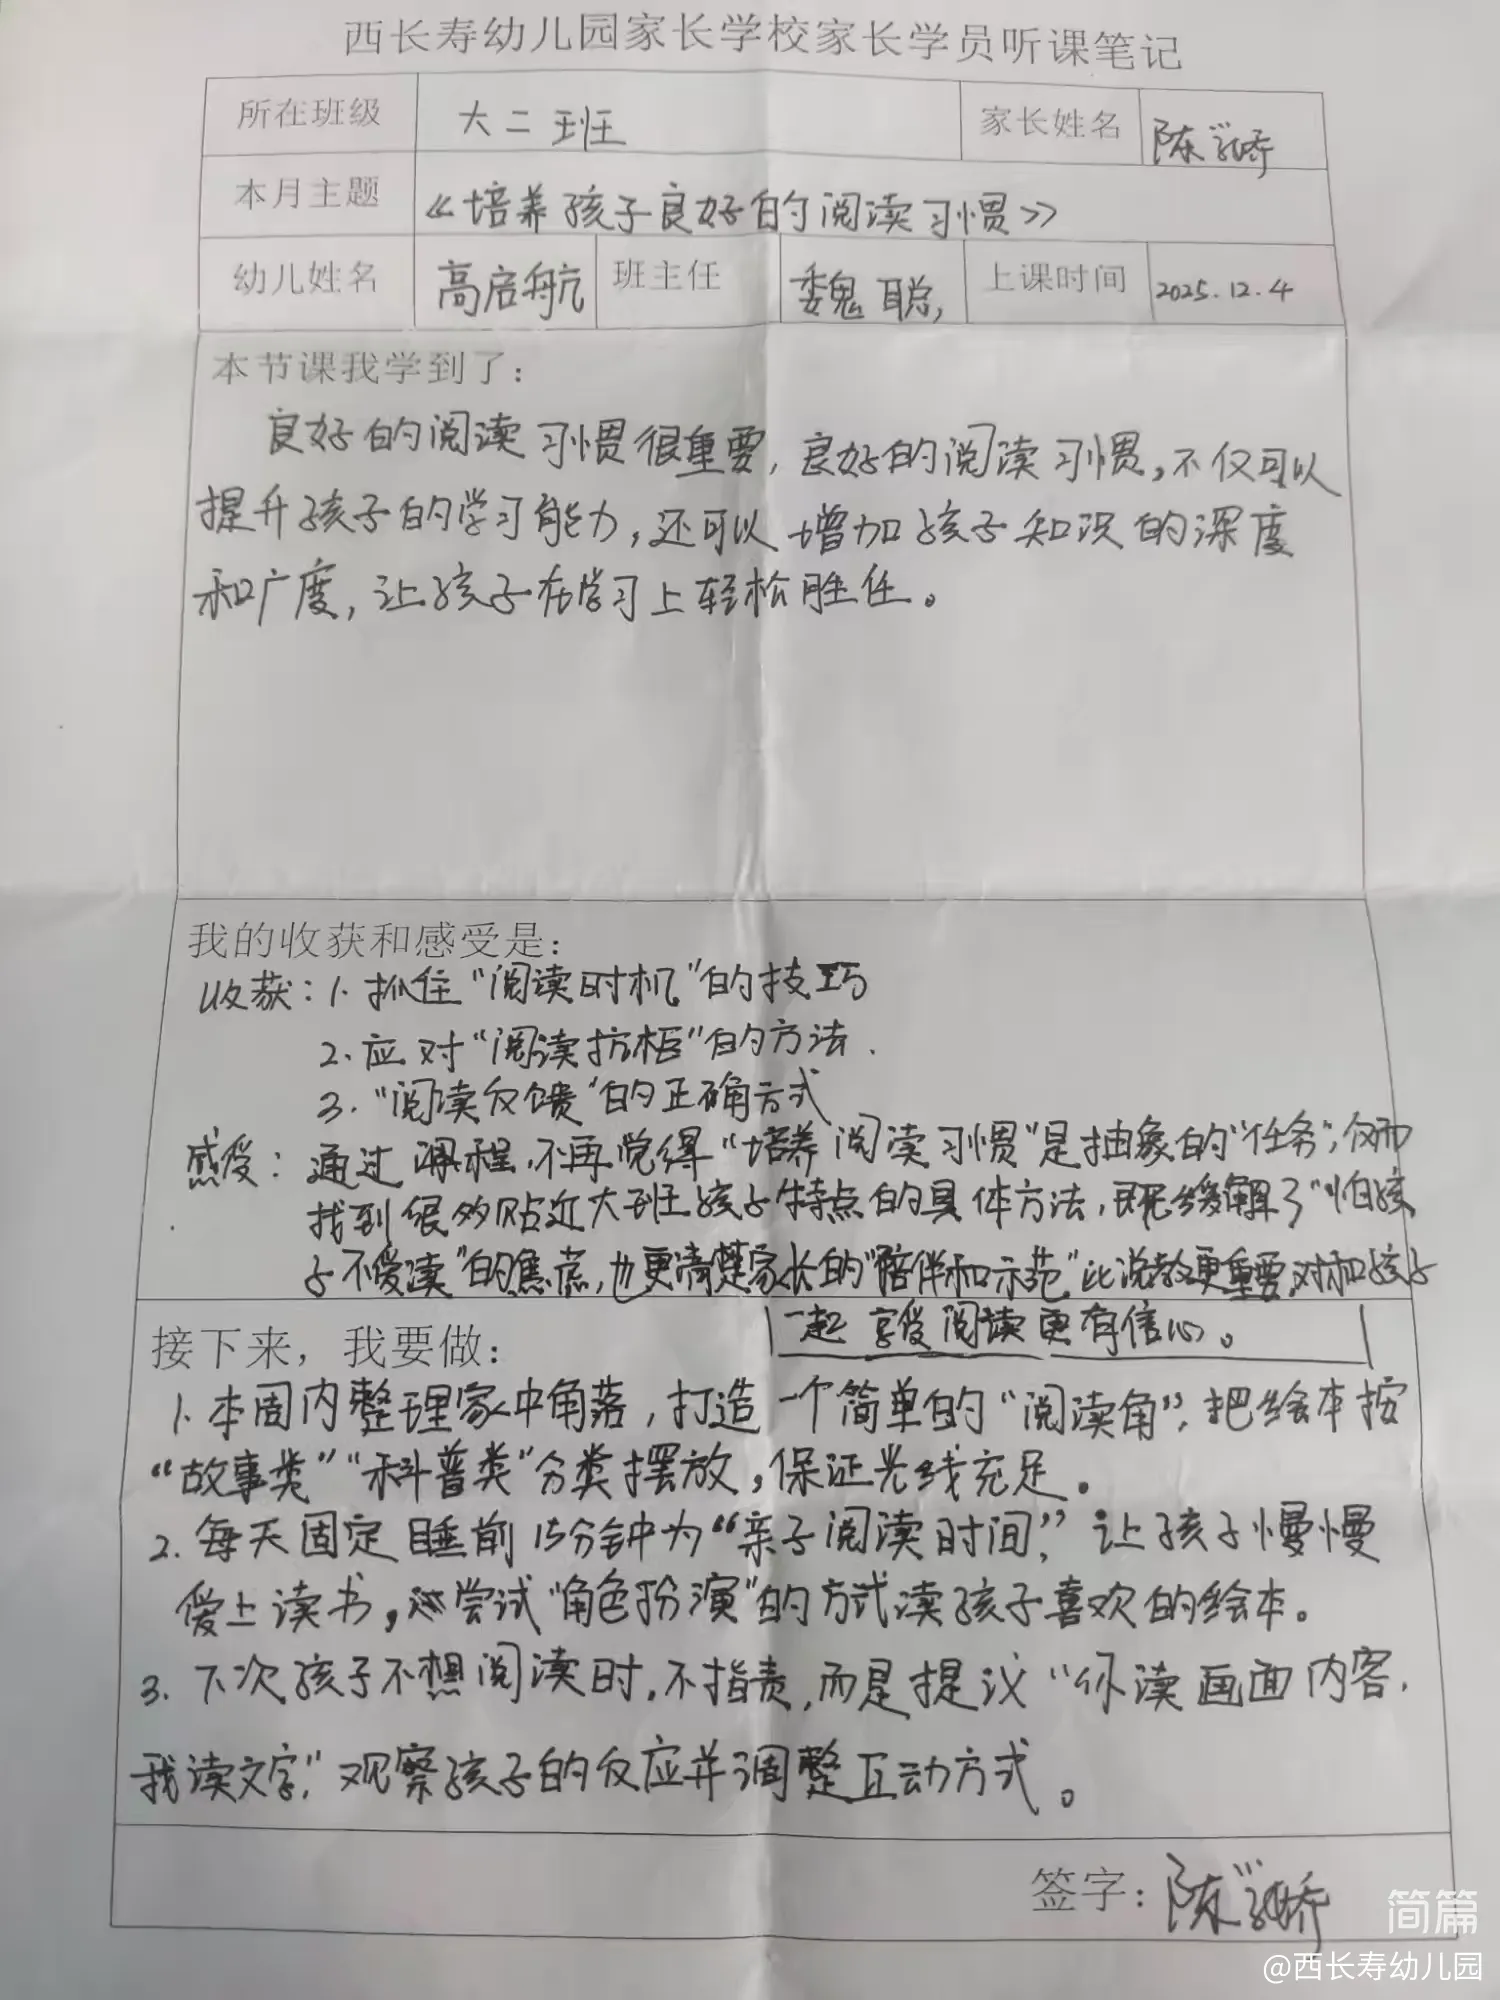 西长寿幼儿园家长学校家长学员听课笔记
所在班级 大二班 家长姓名 陈
本月主题 《培养孩子良好的阅读习惯》
幼儿姓名 高启航 班主任 魏聪 上课时间 2025.12.4
本节课我学到了:
良好的阅读习惯很重要,良好的阅读习惯,不仅可以
提升孩子的学习能力,还可以增加孩子知识的深度
和广度,让孩子在学习上轻松胜任。
我的收获和感受是:
收获:1.抓住“阅读时机”的技巧
2.应对“阅读抗拒”的方法.
3.“阅读反馈”的正确方式
感受:通过课程,不再觉得“培养阅读习惯”是抽象的“任务”,反而
找到很多贴近大班孩子特点的具体方法,既缓解了“怕孩
子不爱读”的焦虑,也更清楚家长的“陪伴和示范”比说教更重要,对和孩子
一起享受阅读更有信心。
接下来,我要做:
1.本周内整理家中角落,打造一个简单的“阅读角”,把绘本按
“故事类”“科普类”分类摆放,保证光线充足。
2.每天固定睡前15分钟为“亲子阅读时间”,让孩子慢慢
爱上读书,尝试“角色扮演”的方式读孩子喜欢的绘本。
3.下次孩子不想阅读时,不指责,而是提议“你读画面内容,
我读文字”,观察孩子的反应并调整互动方式。
签字:陈
简篇
@西长寿幼儿园